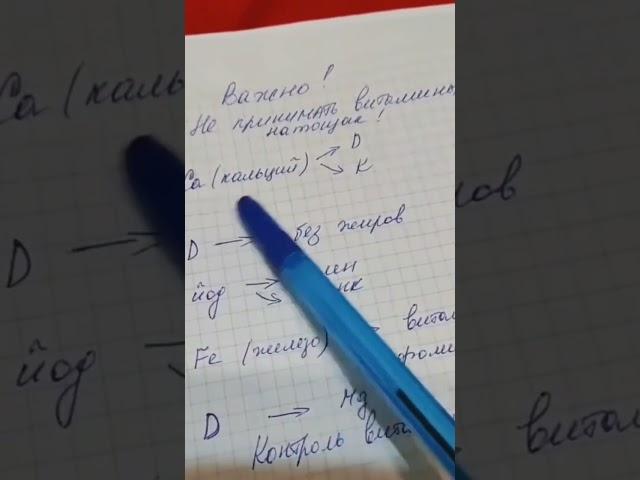 Важно!
Не принимать витамины
натощак!
Ca (кальций) → D
↘ K
D → без жиров
йод →
Fe (железо)
D →
Контроль